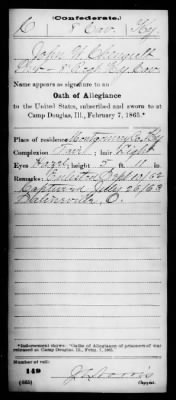 (Confederate.)
C 8 Cav. Ky.
John W. Chenault
Name appears as signature to an
Oath of Allegiance
to the United States, subscribed and sworn to at
Camp Douglas, Ill., February 7, 1865.*
Place of residence Montgomery Co Ky
Complexion Fair; hair Light
Eyes Hazel; height 5 ft. 11 in.
Remarks: Enlisted Sept 10/62
Captured July 26/63
Salineville, O.
*Indorsement shows: "Oaths of Allegiance of prisoners of war
released at Camp Douglas, Ill., Feby. 7, 1865.
Number of roll:
149
(665)
Copyist.